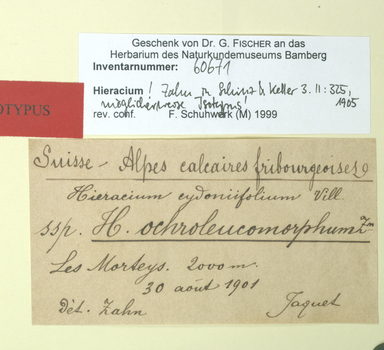 Geschenk von Dr. G. FISCHER an das
Herbarium des Naturkundemuseums Bamberg
Inventarnummer: 60671
Hieracium ! Zahn in Schinz & Keller 3. II: 325,
1905
möglicherweise Isotypus!
rev. conf. F. Schuhwerk (M) 1999
OTYPUS
Suisse - Alpes calcaires fribourgeoises
Hieracium cydoniifolium Vill.
ssp. H. ochroleucomorphum Zn
Les Morteys. 2000 m.
30 août 1901
Dét. Zahn Jaquet